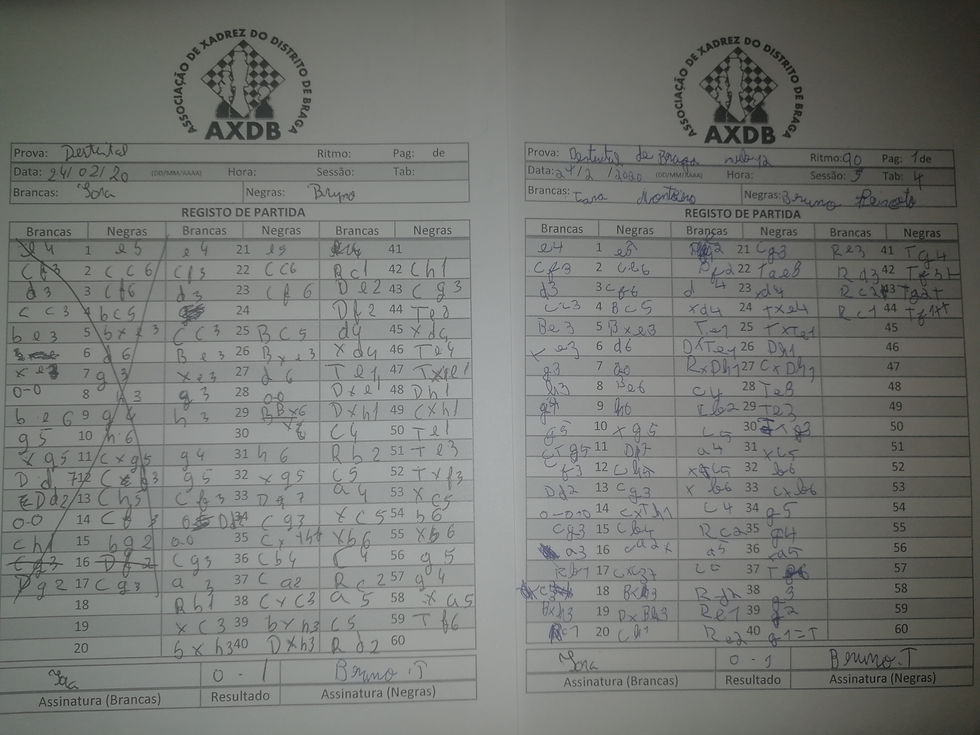 ASSOCIAÇÃO DE XADREZ DO DISTRITO DE BRAGA
AXDB
Prova: Distrital Ritmo: Pag: de
Data: 24/02/20 (DD/MM/AAAA) Hora: Sessão: Tab:
Brancas: Negras: Bruno
REGISTO DE PARTIDA
Brancas Negras Brancas Negras Brancas Negras
e4 1 e5 e4 21 e5 41
Cf3 2 CC6 Cf3 22 CC6 Rc1 42 Ch1
d3 3 Cf6 d3 23 Cf6 De2 43 Cg3
CC3 4 bc5 24 Df2 44
be3 5 bxe3 CC3 25 BC5 d4 45 xd4
6 d6 Be3 26 Bxe3 xd4 46 Te4
xe3 7 g3 xe3 27 d6 Te1 47 Txe1
0-0 8 h3 g3 28 00 Dxe1 48 Dh1
be6 9 g4 h3 29 Dxh1 49 Cxh1
g5 10 h6 30 C4 50 Te1
xg5 11 Cxg5 g4 31 h6 Rb2 51 Te3
12 g5 32 xg5 C5 52 Txf3
Dd2 13 Ch5 Cf3 33 Dg7 a4 53 xc5
0-0 14 34 Cg3 xc5 54 b6
Ch1 15 bg2 0-0 35 xb6 55 xb6
Cg3 16 Df2 Cg3 36 Cb4 C4 56 g5
Dg2 17 Cg3 a3 37 Ca2 Rc2 57 g4
18 Rb1 38 CxC3 a5 58 xa5
19 xC3 39 bxh3 C5 59 Tf6
20 bxh3 40 Dxh3 Rd2 60
0-1 Bruno.T
Assinatura (Brancas) Resultado Assinatura (Negras)
ASSOCIAÇÃO DE XADREZ DO DISTRITO DE BRAGA
AXDB
Prova: Distrital de Braga Ritmo: 90 Pag: 1 de
Data: 24/2/2020 (DD/MM/AAAA) Hora: Sessão: 5 Tab: 4
Brancas: Monteiro Negras: Bruno
REGISTO DE PARTIDA
Brancas Negras Brancas Negras Brancas Negras
e4 1 e5 21 Cg3 Re3 41 Tg4
Cf3 2 Cc6 Df2 22 Tae8 Rd3 42
d3 3 Cf6 d4 23 xd4 43 Tg2+
Cc3 4 Bc5 xd4 24 Txe4 Rc1 44
Be3 5 Bxe3 Te1 25 TxTe1 45
xe3 6 d6 DxTe1 26 Dh1 46
g3 7 00 RxDh1 27 CxDh1 47
h3 8 Be6 C4 28 Te8 48
g4 9 h6 29 Te3 49
g5 10 xg5 c5 30 50
11 a4 31 xc5 51
12 32 b6 52
Dd2 13 Cg3 xb6 33 cxb6 53
0-0-0 14 CxTh1 C4 34 g5 54
Cg3 15 Cb4 Rc2 35 g4 55
a3 16 Ca2+ a5 36 xa5 56
Rb1 17 Cxc3+ c5 37 57
18 Bxh3 38 g3 58
Bxh3 19 DxBh3 Re1 39 g2 59
Rc1 20 Re2 40 g1=T 60
0-1 Bruno.T
Assinatura (Brancas) Resultado Assinatura (Negras)